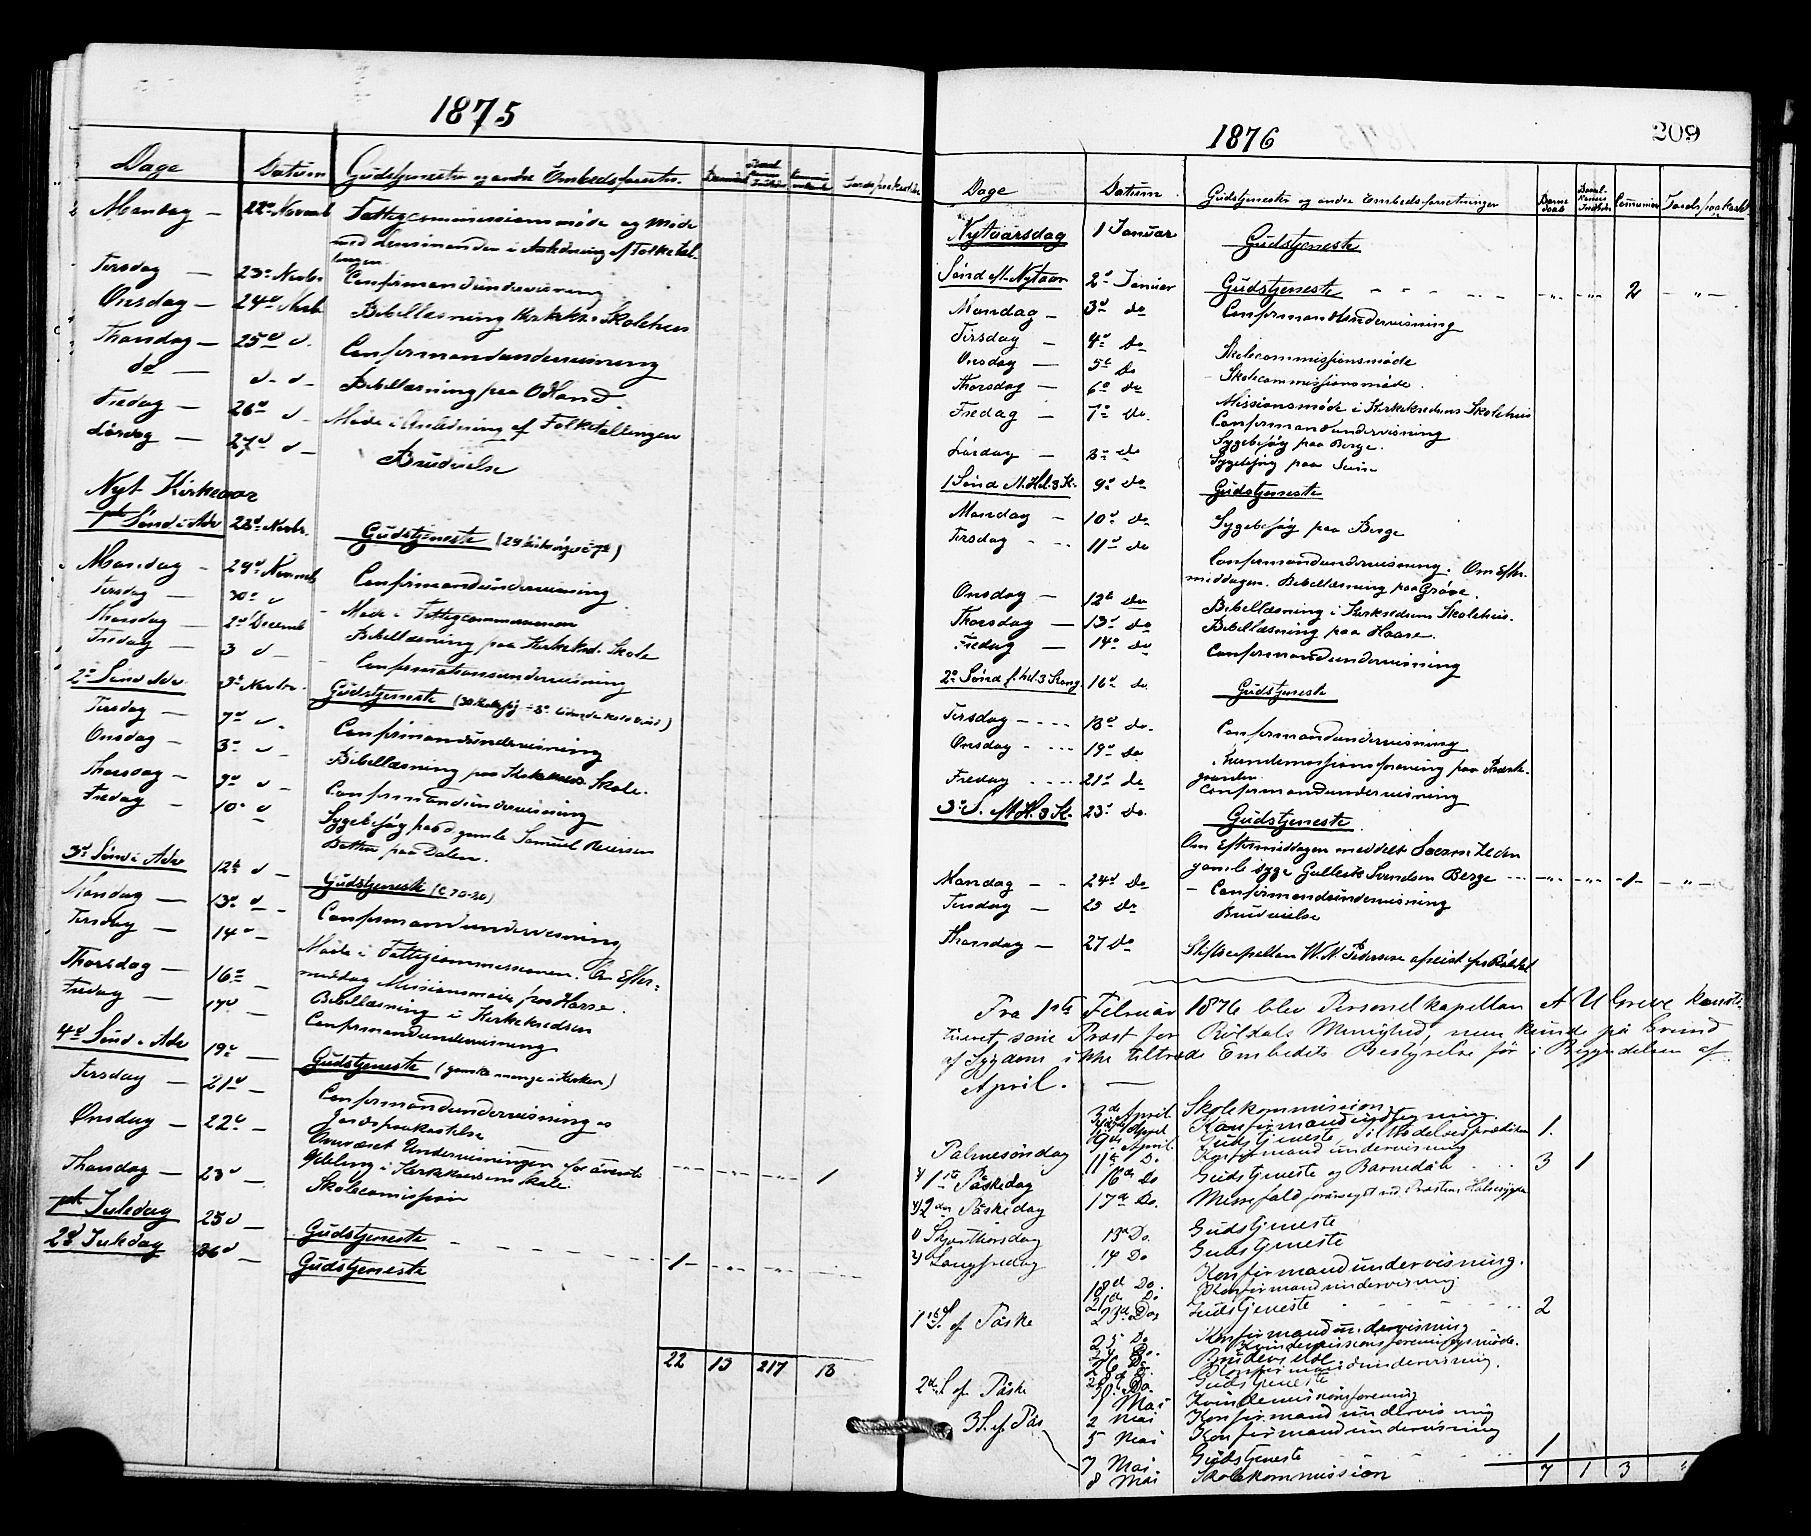 1875
Dage Datum Gudstjeneste og andre Embedsforretn.
Mandag — 22de Novemb Fattigcommissionsmöde og Möde
med Lensmanden i Anledning af Folketæl-
lingen
Tirsdag — 23de Novbr Confirmandundervisning
Onsdag — 24de Novb Bibellæsning Kirkekr. Skolehus
Thorsdag — 25de d. Confirmandundervisning
do — d - d - Bibellæsning paa
Fredag — 26de d - Möde i Anledning af Folketællingen
Lördag — 27de d - Brudvielse
Nyt Kirkeaar
1ste Sönd i Adv 28de Novbr. Gudstjeneste
Mandag - 29de Novemb Confirmandundervisning
Tirsdag — 30te d - Möde i Fattigcommissionen
Thorsdag — 2den Decemb Bibellæsning paa Kirkekreds. Skole
Fredag — 3 d - Confirmationsundervisning
2den Sönd Adv. Gudstjeneste
Tirsdag — 7de d. Confirmandundervisning
Onsdag — 8de d - Bibellæsning paa Kirkekreds Skole.
Thorsdag — 9de d - Confirmandundervisning
Fredag — 10de d Sygebesög paa gamle Samuel Reiersen
Botten paa Dalen.
3die Sönd i Adv 12te d - Gudstjeneste (C 70-80)
Mandag — 13de d - Confirmandundervisning
Tirsdag — 14de - Möde i Fattigcommissionen. Om Efter-
middag Missionsmöde paa Horre.
Thorsdag — 16de - Bibellæsning i Kirkekredsen
Fredag — 17de - Confirmandundervisning
4de Sönd i Adv 19de - Gudstjeneste (ganske mange i Kirken)
Tirsdag — 21de - Confirmandundervisning
Jordspaakastelse
Onsdag — 22de - Overværet Undervisningen for överste
Afdeling i Kirkekredsens Skole - - - 1
Thorsdag — 23de - Skolecommission
1ste Juledag 25d - Gudstjeneste - - - 1 -
2den Juledag 26d - Gudstjeneste
22 13 217 13
209
1876
Dage Datum Gudstjeneste og andre Embedsforretninger Barne daab Communion Jordspaakast
Nytaarsdag 1 Januar Gudstjeneste
Sönd M. Nytaar 2den Januar Gudstjeneste - - - 2 - " -
Mandag — 3de do Confirmandundervisning
Tirsdag — 4de Do Skolecommissionsmöde
Onsdag — 5te Do Skolecommissionsmöde.
Thorsdag — 6te do Missionsmöde i Kirkekredsens Skolehus
Fredag — 7de Do. Confirmandundervisning
Sygebesög paa Berge.
Lördag — 8de do Sygebesög paa
1 Sönd M. Hel. 3 K. 9de do Gudstjeneste
Mandag — 10de do Sygebesög paa Berge
Tirsdag - - - 11te do Confirmandundervisning. Om Efter-
middagen. Bibellæsning paa Gröve.
Onsdag — 12te Do Bibellæsning i Kirkekredsens Skolehus.
Thorsdag — 13de do Bibellæsning paa Haare.
Fredag — 14de do Confirmandundervisning
2den Sönd f. hel. 3 Kong. 16de do. Gudstjeneste
Tirsdag - - - - 18de do. Confirmandundervisning
Onsdag - - - - 19de Do Kvindemissionsforening paa Præste-
gaarden
Fredag - - - - 21de do Confirmandundervisning
3de S. M. H. 3 K. 23de Do. Gudstjeneste.
Om Eftermiddagen meddelt Sacram. til den
gamle syge Gulleik Svendsen Berge - - - 1 - " -
Mandag - - 24de Do - Confirmandundervisning
Tirsdag — 25 Do Brudvielse
Thorsdag — 27 Do Stiftscapellan W. N. Pedersen afreist fra Röldal
Fra 1ste Februar 1876 blev Personelkapellan A U Greve konsti-
tueret som Præst for Röldals Menighed, men kunde på Grund
af Sygdom ikke tiltræde Embedets Bestyrelse för i Begyndelsen af
April. —
3de April. Skolekommission
April Konfirmandundervisning.
Palmesöndag 9de April. Gudstjeneste, Tiltrædelsesprædiken 1.
11te Do Konfirmandundervisning
1ste Påskedag 16de Do Gudstjeneste og Barnedåb - - - 3 1
2den Påskedag 17de Do. Messefald forårsaget ved Præstens Halssygdom
Skjærthorsdag 13de Do. Gudstjeneste
Langfredag 14 Do Gudstjeneste
18de Do. Konfirmandundervisning.
21de Do Konfirmandundervisning
1ste S. ef Påske 23de Do. Gudstjeneste - - - 2
25 Do Konfirmandundervisning
Do. Kvindemissionsforeningsmöde.
26 Do. Brudevielse
28de Do. Konfirmandundervisning.
2den S. ef Påske 30 Do. Gudstjeneste
1 Mai Kvindemissionsforening
2 Mai Konfirmandundervisning
5 Mai Konfirmandundervisning
3 S. ef. Pås. 7 Mai Gudstjeneste 1
8 Mai Skolekommission 7 1 3